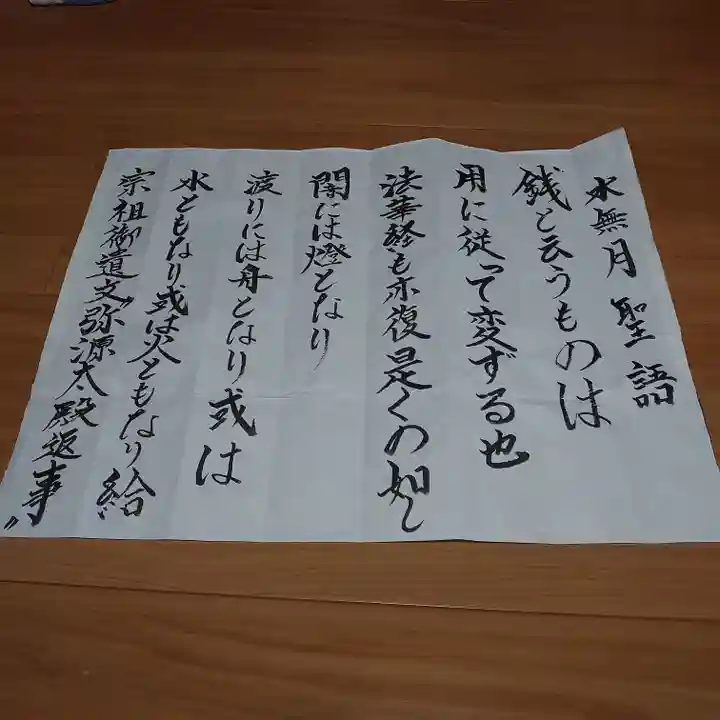 水無月 聖語
銭と云うものは
用に従って変ずる也
法華経も亦復是くの如し
闇には燈となり
渡りには舟となり或は
水ともなり或は火ともなり給
宗祖御遺文〝弥源太殿返事〟